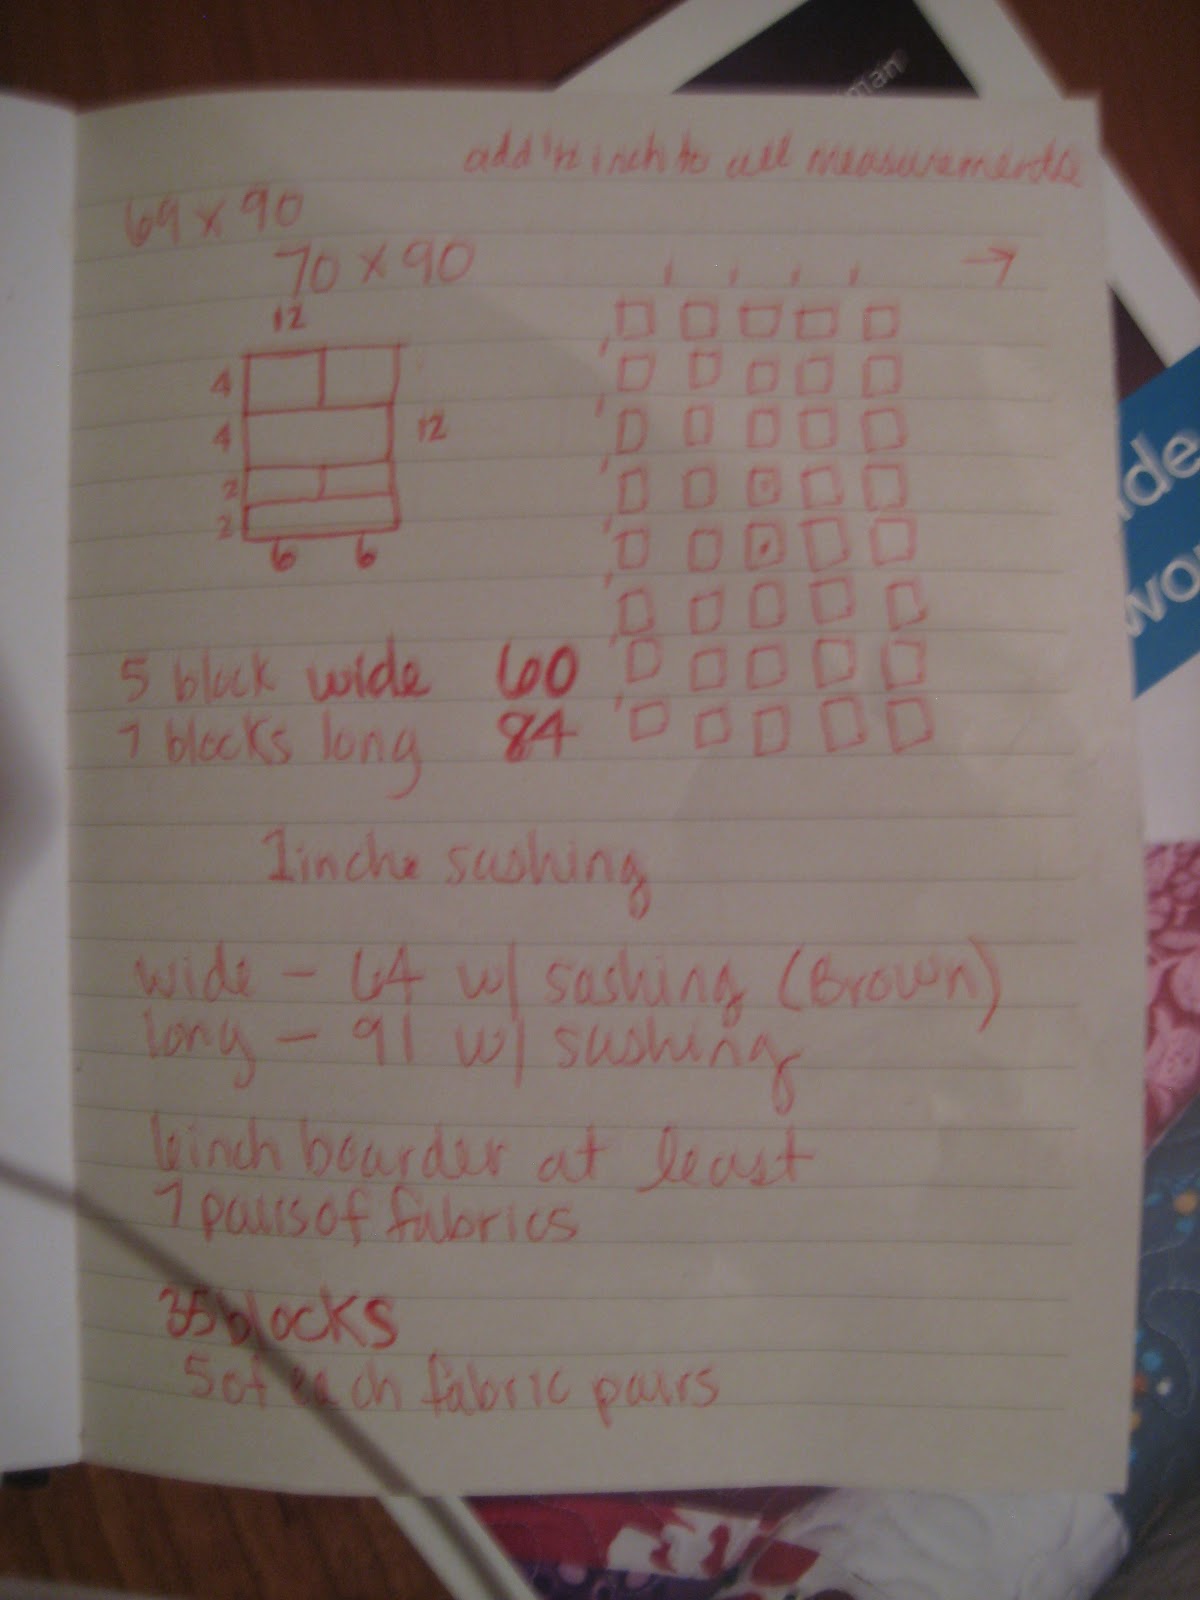 add 1/2 inch to all measurements
69 x 90
70 x 90
12
4
4
12
2
2
6 6
5 block wide 60
7 blocks long 84
1 inch sashing
wide - 64 w/ sashing (Brown)
long - 91 w/ sashing
6 inch boarder at least
7 pairs of fabrics
35 blocks
5 of each fabric pairs
man
ide
wor